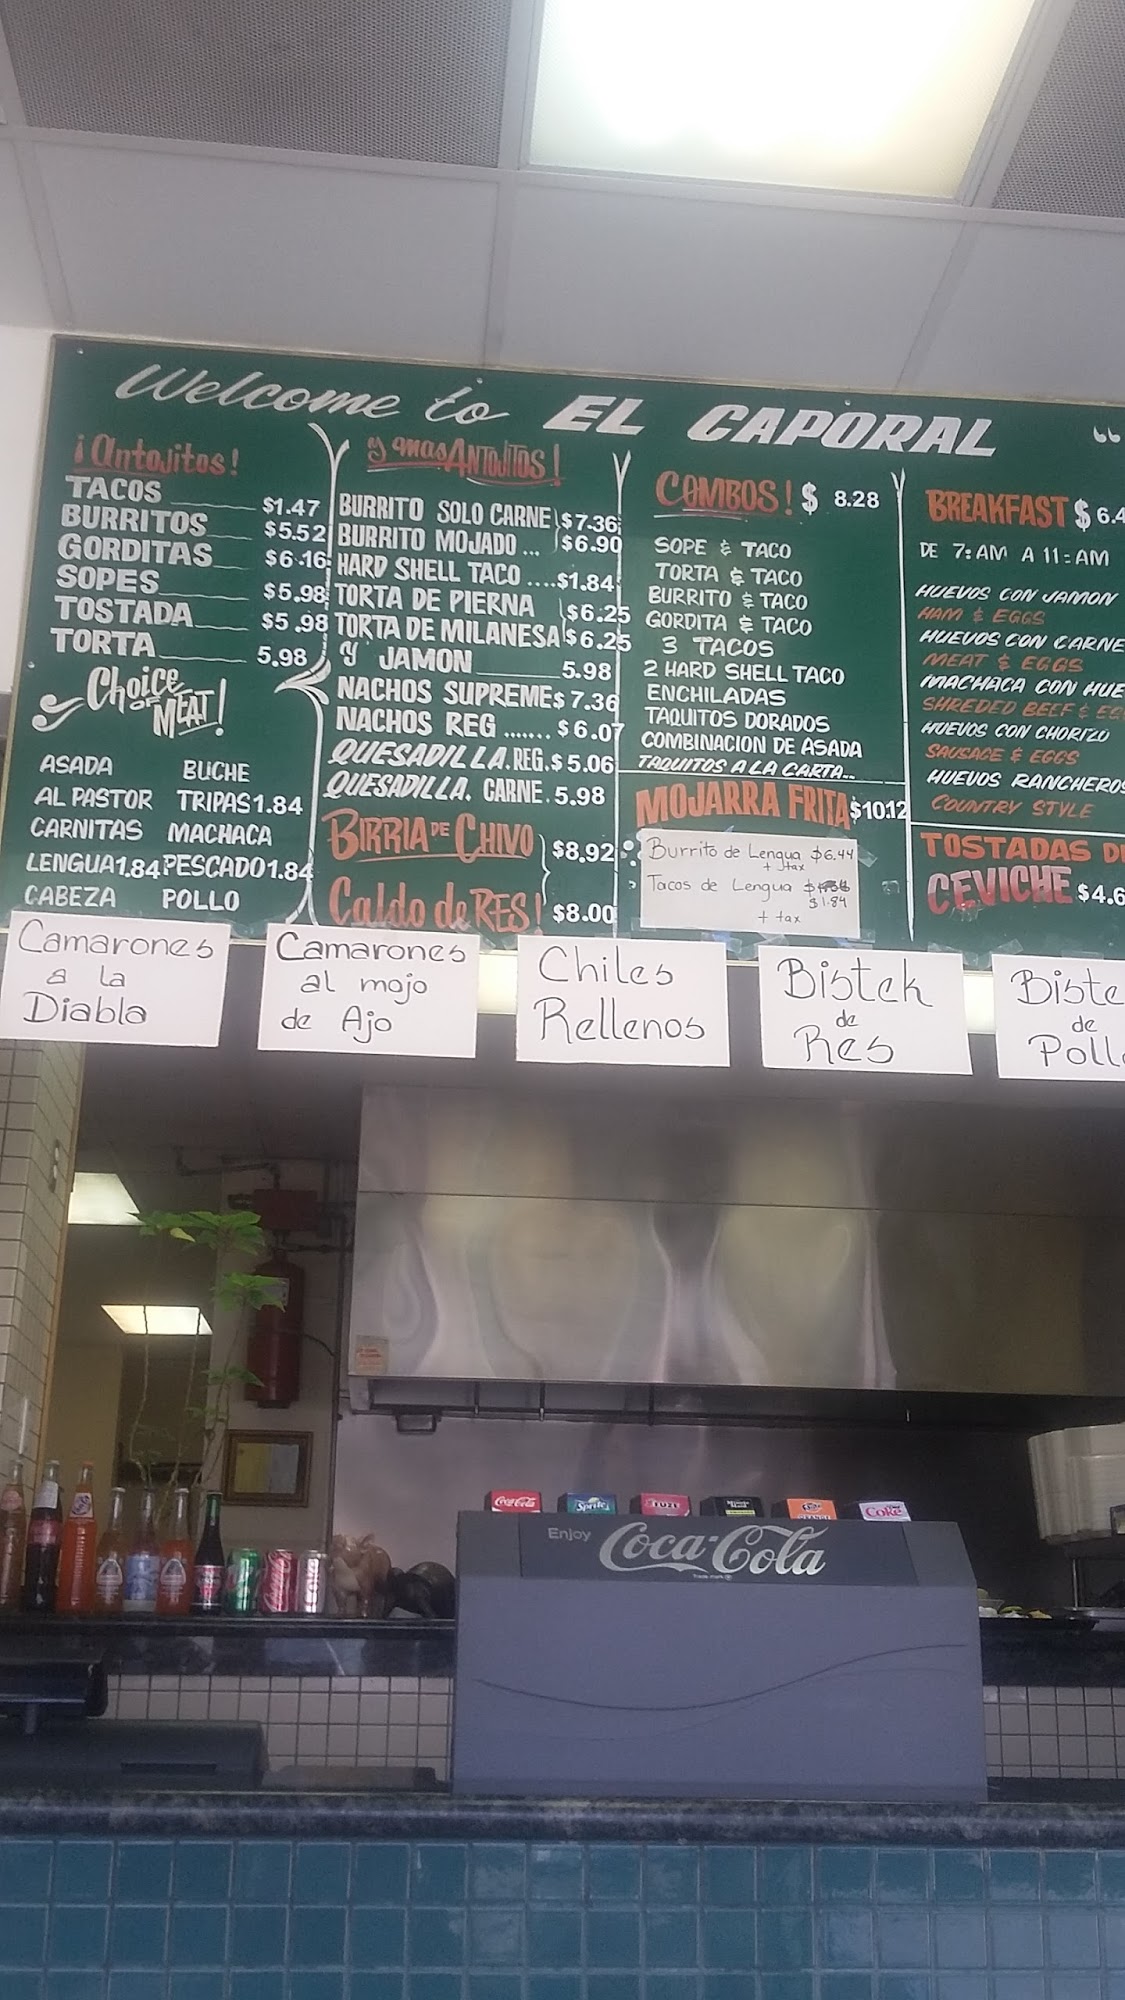 Welcome to EL CAPORAL "
¡Antojitos!
TACOS $1.47
BURRITOS $5.52
GORDITAS $6.16
SOPES $5.98
TOSTADA $5.98
TORTA 5.98
Choice OF MEAT!
ASADA BUCHE
AL PASTOR TRIPAS 1.84
CARNITAS MACHACA
LENGUA 1.84 PESCADO 1.84
CABEZA POLLO
y mas ANTOJITOS!
BURRITO SOLO CARNE $7.36
BURRITO MOJADO ... $6.90
HARD SHELL TACO ....$1.84
TORTA DE PIERNA $6.25
TORTA DE MILANESA $6.25
Y JAMON 5.98
NACHOS SUPREME $7.36
NACHOS REG ....... $6.07
QUESADILLA. REG. $5.06
QUESADILLA. CARNE. 5.98
BIRRIA DE CHIVO $8.92
Caldo de RES! $8.00
COMBOS! $ 8.28
SOPE & TACO
TORTA & TACO
BURRITO & TACO
GORDITA & TACO
3 TACOS
2 HARD SHELL TACO
ENCHILADAS
TAQUITOS DORADOS
COMBINACION DE ASADA
TAQUITOS A LA CARTA..
MOJARRA FRITA $10.12
Burrito de Lengua $6.44
+ tax
Tacos de Lengua
$1.84
+ tax
BREAKFAST $6.4
DE 7:AM A 11:AM
HUEVOS CON JAMON
HAM & EGGS
HUEVOS CON CARNE
MEAT & EGGS
MACHACA CON HUE
SHREDED BEEF & EG
HUEVOS CON CHORIZO
SAUSAGE & EGGS
HUEVOS RANCHEROS
COUNTRY STYLE
TOSTADAS D
CEVICHE $4.6
Camarones
a la
Diabla
Camarones
al mojo
de Ajo
Chiles
Rellenos
Bistek
de
Res
Biste
de
Poll
Coca-Cola
Sprite
FUZE
Minute Maid
ORANGE
Coke
Enjoy
Coca-Cola